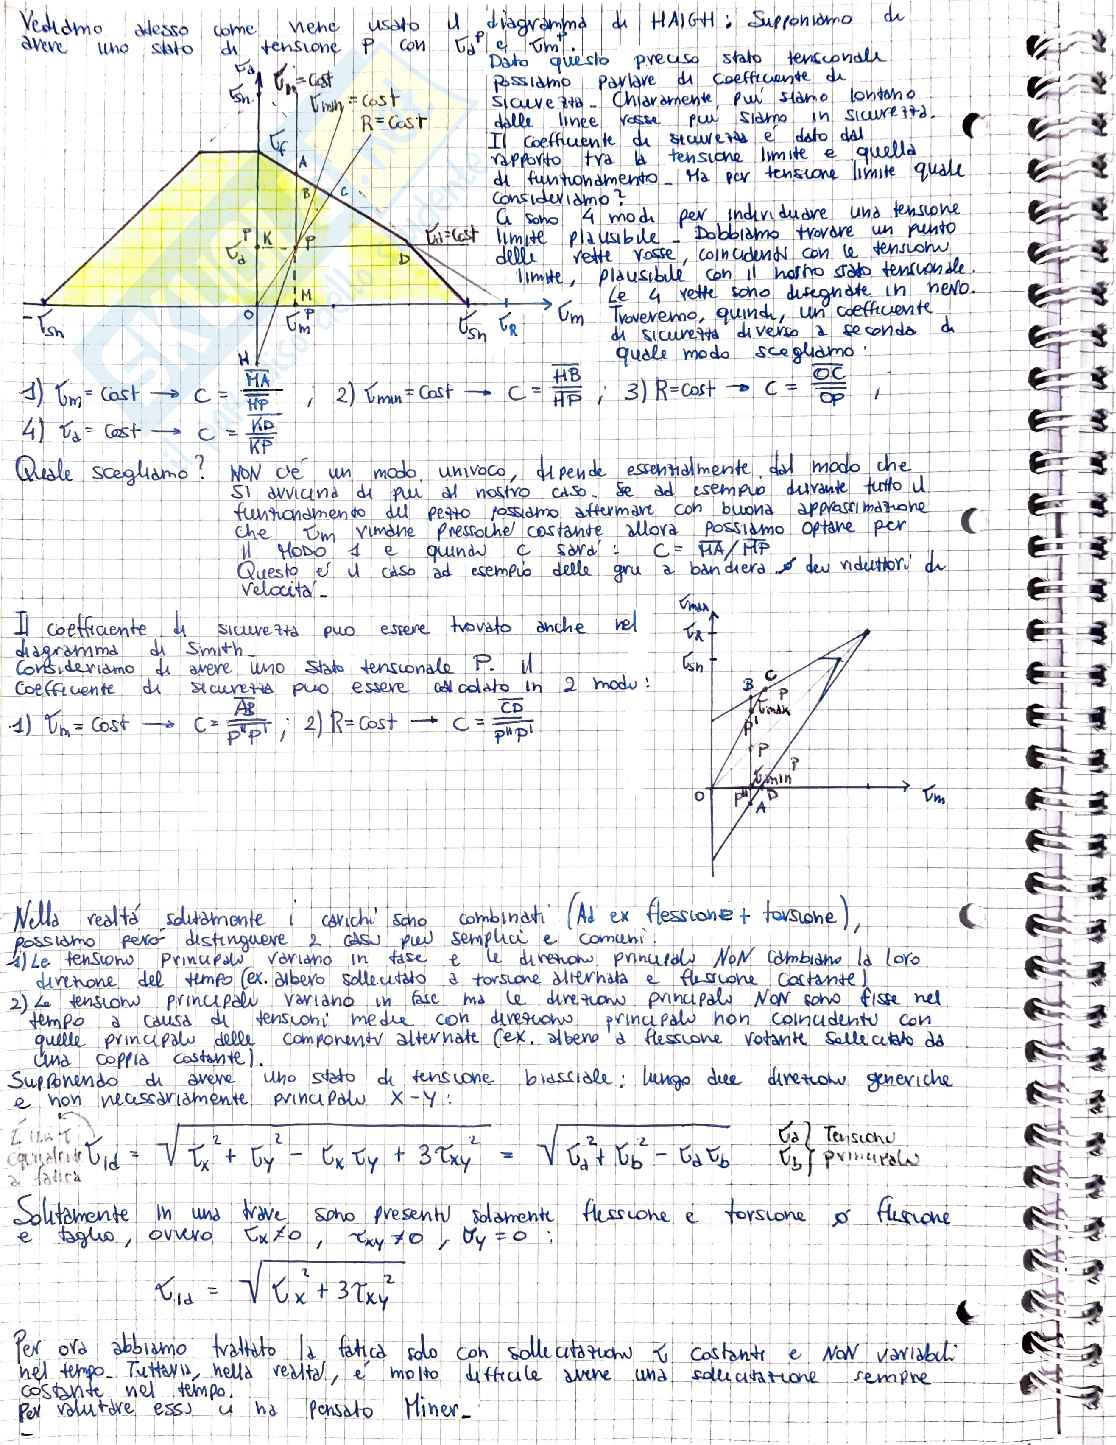 Vediamo adesso come viene usato il diagramma di HAIGH: Supponiamo di
avere uno stato di tensione P con σa^P e σm^P.
Dato questo preciso stato tensionale
possiamo parlare di coefficiente di
sicurezza. Chiaramente, più siamo lontano
dalle linee rosse più siamo in sicurezza.
Il coefficiente di sicurezza è dato dal
rapporto tra la tensione limite e quella
di funzionamento. Ma per tensione limite quale
consideriamo?
Ci sono 4 modi per individuare una tensione
limite plausibile. Dobbiamo trovare un punto
delle rette rosse, coincidenti con le tensioni
limite, plausibile con il nostro stato tensionale.
Le 4 rette sono disegnate in nero.
Troveremo, quindi, un coefficiente
di sicurezza diverso a seconda di
quale modo scegliamo:
σa
σm=cost
σsn
σmin=cost
R=cost
σf
A
B
C
σa^P
K
P
σa=cost
D
M
-σsn
O
σm^P
σsn
σR
σm
H
1) σm=cost → C = MA/MP ; 2) σmin=cost → C = HB/HP ; 3) R=cost → C = OC/OP ,
4) σa=cost → C = KD/KP
Quale scegliamo? NON c'è un modo univoco, dipende essenzialmente dal modo che
si avvicina di più al nostro caso. Se ad esempio durante tutto il
funzionamento del pezzo possiamo affermare con buona approssimazione
che σm rimane pressoché costante allora possiamo optare per
il MODO 1 e quindi C sarà: C = MA/MP
Questo è il caso ad esempio delle gru a bandiera o dei riduttori di
velocità.
Il coefficiente di sicurezza può essere trovato anche nel
diagramma di Smith.
Consideriamo di avere uno stato tensionale P. Il
coefficiente di sicurezza può essere calcolato in 2 modi:
1) σm=cost → C = AB/P"P' ; 2) R=cost → C = CD/P"P'
σmax
σR
σsn
B
C
σmax^P
P'
P
σmin^P
O
P"
D
A
σm
Nella realtà solitamente i carichi sono combinati (Ad ex flessione + torsione),
possiamo però distinguere 2 casi più semplici e comuni:
1) Le tensioni principali variano in fase e le direzioni principali NON cambiano la loro
direzione del tempo (ex. albero sollecitato a torsione alternata e flessione costante)
2) Le tensioni principali variano in fase ma le direzioni principali NON sono fisse nel
tempo a causa di tensioni medie con direzioni principali non coincidenti con
quelle principali delle componenti alternate (ex. albero a flessione rotante sollecitato da
una coppia costante).
Supponendo di avere uno stato di tensione biassiale: lungo due direzioni generiche
e non necessariamente principali X-Y:
È una σ
equivalente
a fatica
σid = √(σx² + σy² - σx σy + 3τxy²) = √(σa² + σb² - σa σb)
σa } Tensioni
σb } principali
Solitamente in una trave sono presenti solamente flessione e torsione o flessione
e taglio, ovvero σx≠0, τxy≠0, σy=0:
σid = √(σx² + 3τxy²)
Per ora abbiamo trattato la fatica solo con sollecitazioni σ costanti e NON variabili
nel tempo. Tuttavia, nella realtà, è molto difficile avere una sollecitazione sempre
costante nel tempo.
Per valutare esso ci ha pensato Miner.